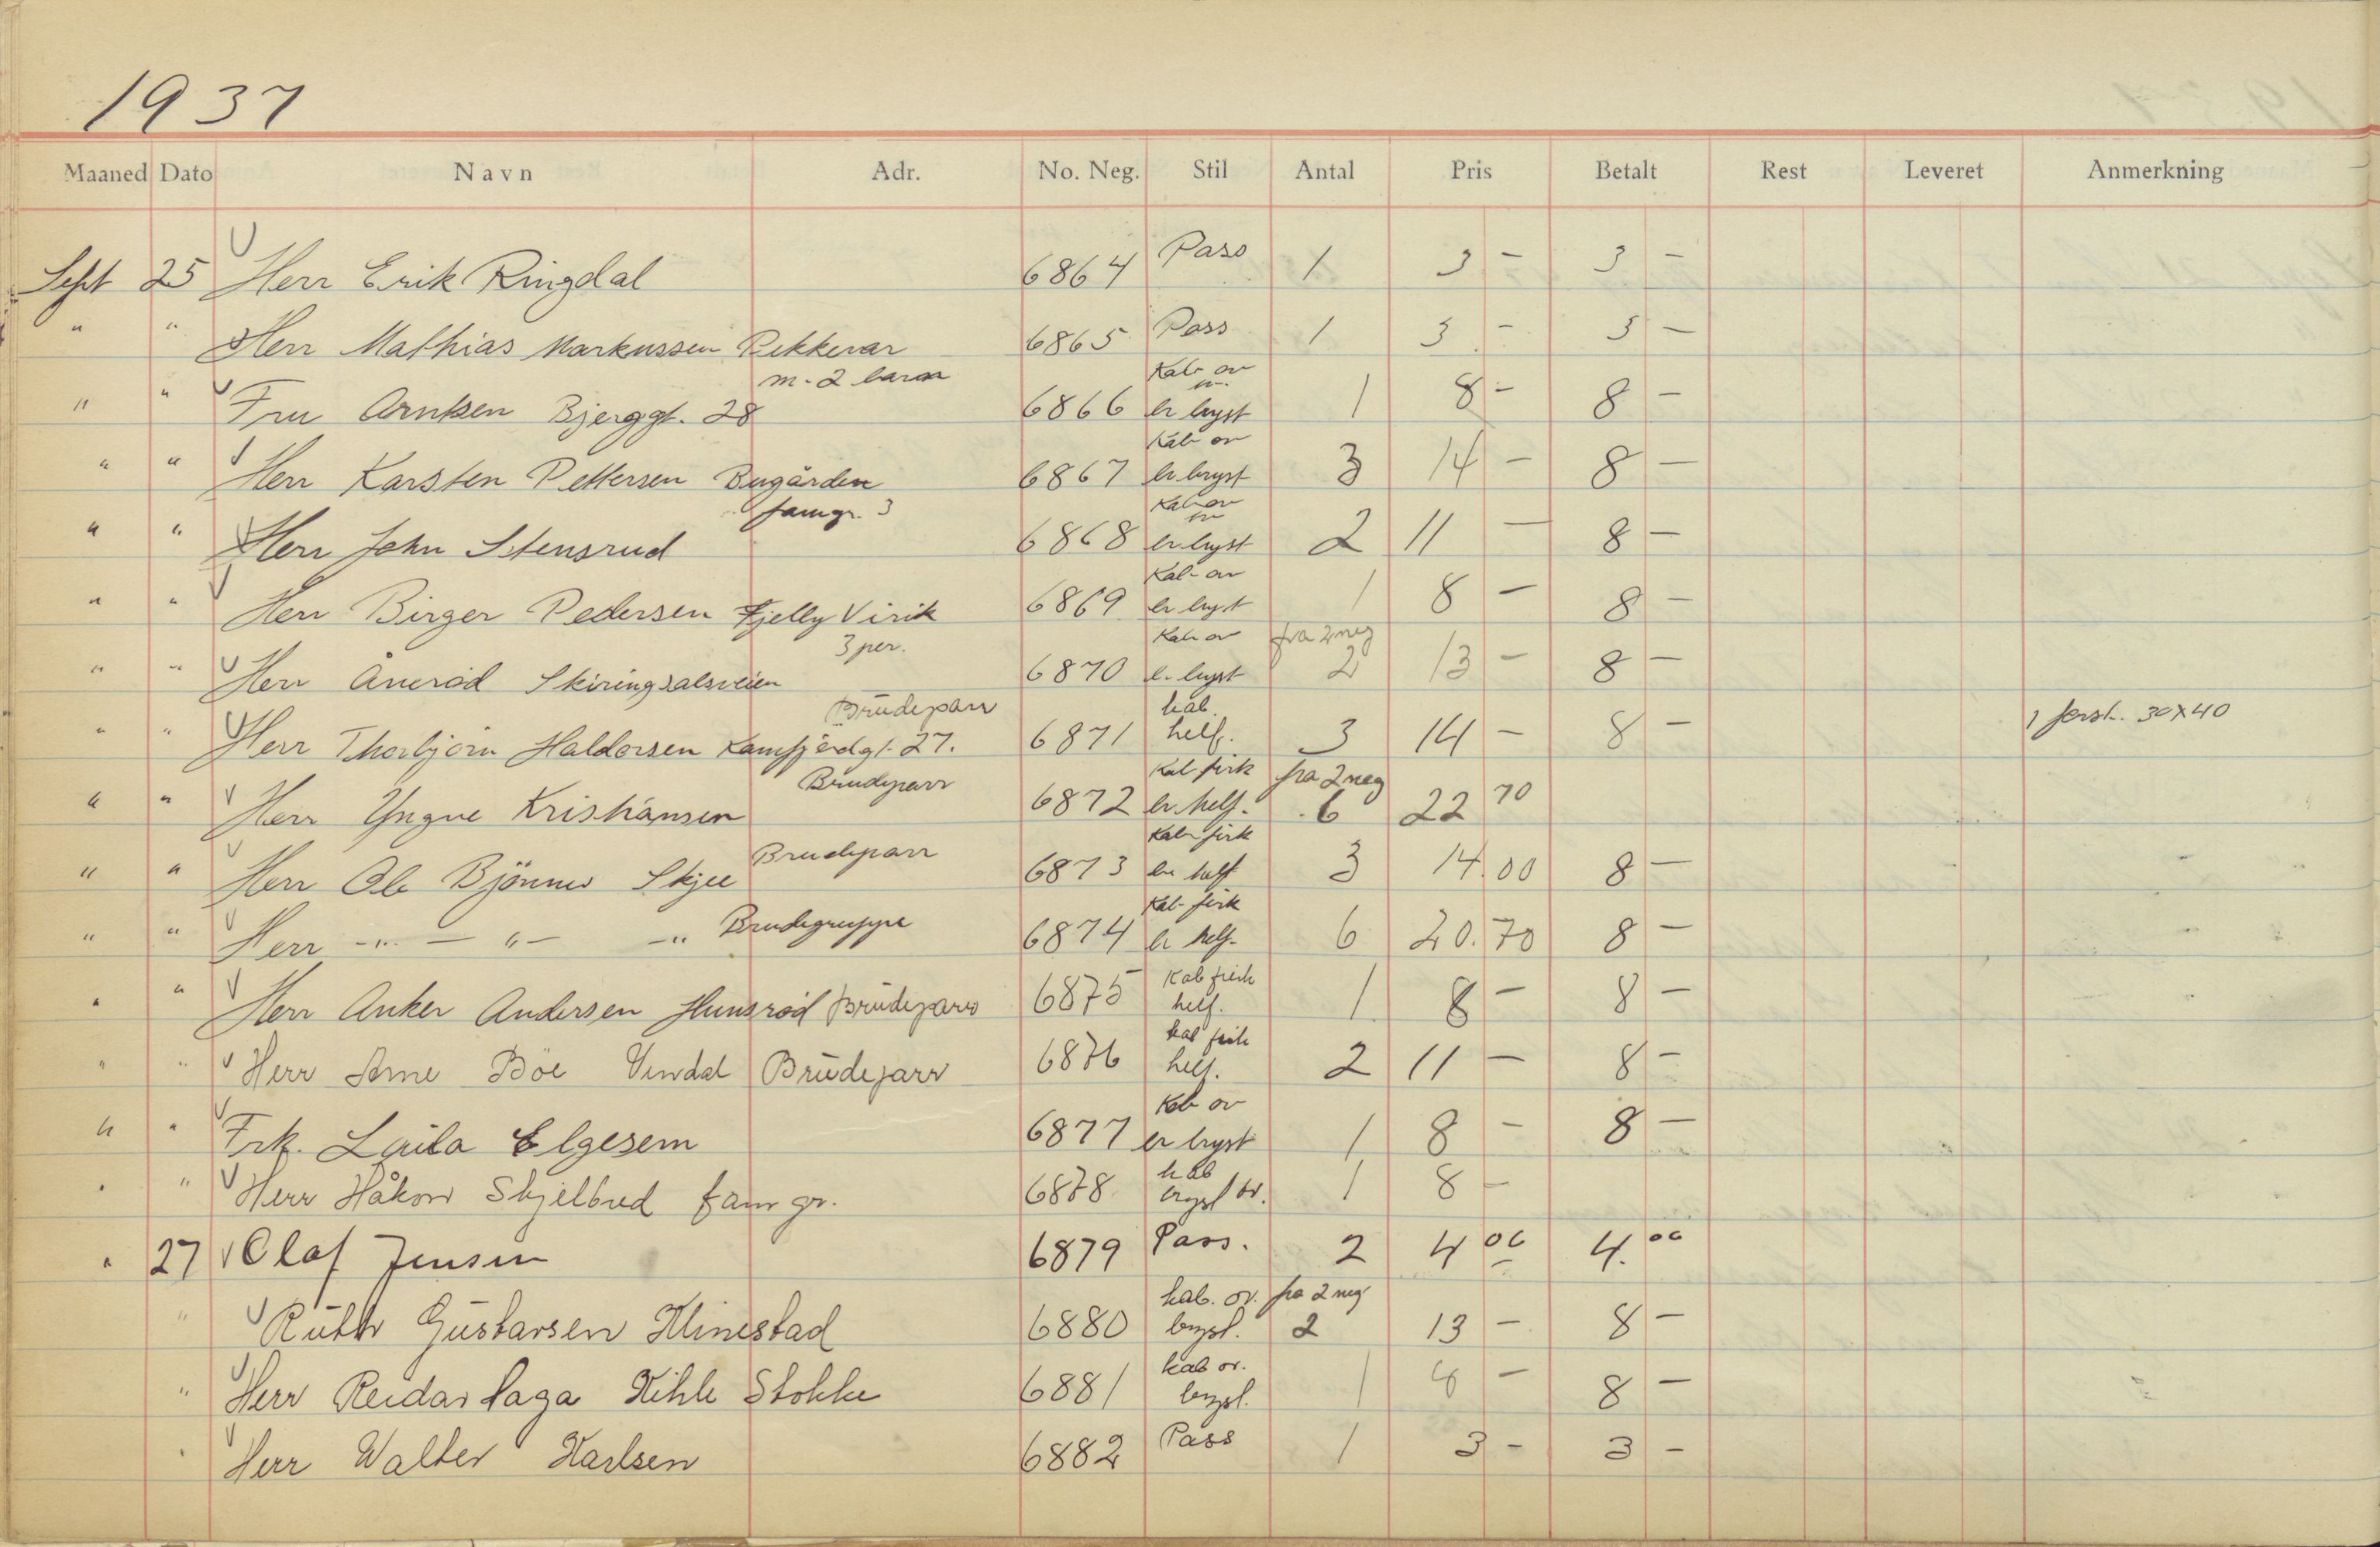 1937
Maaned Dato Navn Adr. No. Neg. Stil Antal Pris Betalt Rest Leveret Anmerkning
Sept 25 Herr Erik Ringdal 6864 Pass 1 3 - 3 -
" " Herr Mathias Markussen Rekkevar 6865 Pass 1 3 - 3 -
m. 2 barn Kab ov
" " Fru Arntsen Bjerggt. 28 6866 br bryst 1 8 - 8 -
Kab ov
" " Herr Karsten Pettersen Bugården 6867 br bryst 3 14 - 8 -
famgr. 3 Kab ov
" " Herr John Stensrud 6868 br bryst 2 11 - 8 -
Kab ov
" " Herr Birger Pedersen Fjelly Virik 6869 br bryst 1 8 - 8 -
3 per. Kab ov fra 2 neg
" " Herr Ånerød Skiringsalsveien 6870 br bryst 2 13 - 8 -
Brudepar kab. 1 forst. 30x40
" " Herr Thorbjørn Haldorsen Kamfjordgt. 27. 6871 helf. 3 14 - 8 -
Brudeparr Kab firk fra 2 neg
" " Herr Yngve Kristiansen 6872 br. helf. 6 22 70
Brudeparr Kab firk
" " Herr Ole Bjönnes Skjee 6873 br helf 3 14.00 8 -
Brudegruppe Kab firk
" " Herr -"- -"- -" 6874 br helf. 6 20.70 8 -
Kab firk
" " Herr Anker Andersen Hunsrød Brudeparr 6875 helf. 1 8 - 8 -
kab firk
" " Herr Arne Böe Vindal Brudeparr 6876 helf. 2 11 - 8 -
Kab ov
" " Frk. Laila Elgesem 6877 br bryst 1 8 - 8 -
kab
" " Herr Håkon Skjelbred fam gr. 6878 bryst br. 1 8 -
" 27 Olaf Jensen 6879 Pass. 2 4 00 4.00
kab. ov. fra 2 neg
" Ruth Gustavsen Klinestad 6880 bryst. 2 13 - 8 -
kab ov.
" Herr Reidar Saga Kihle Stokke 6881 bryst. 1 8 - 8 -
" Herr Walter Karlsen 6882 Pass 1 3 - 3 -